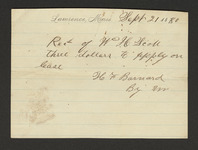 Lawrence, Sept. 21 1880
Rec't of Wm H. Scott
three dollars to apply on
Case
H. W. Barnard
By